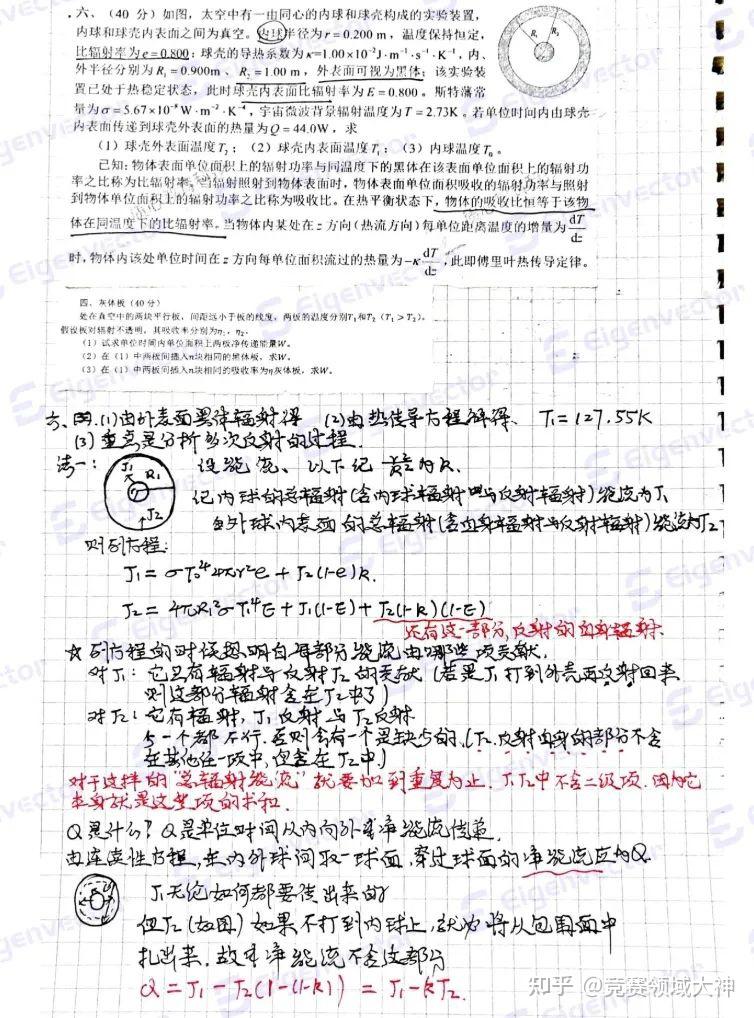 六、(40 分) 如图，太空中有一由同心的内球和球壳构成的实验装置，
内球和球壳内表面之间为真空。内球半径为 r=0.200 m，温度保持恒定，
比辐射率为 e=0.800；球壳的导热系数为 κ=1.00×10⁻²J·m⁻¹·s⁻¹·K⁻¹，内、
外半径分别为 R₁=0.900m、R₂=1.00 m，外表面可视为黑体；该实验装
置已处于热稳定状态，此时球壳内表面比辐射率为 E=0.800。斯特藩常
量为 σ=5.67×10⁻⁸W·m⁻²·K⁻⁴，宇宙微波背景辐射温度为 T=2.73K。若单位时间内由球壳
内表面传递到球壳外表面的热量为 Q=44.0W，求
(1) 球壳外表面温度 T₂；(2) 球壳内表面温度 T₁；(3) 内球温度 T₀。
已知：物体表面单位面积上的辐射功率与同温度下的黑体在该表面单位面积上的辐射功
率之比称为比辐射率。当辐射照射到物体表面时，物体表面单位面积吸收的辐射功率与照射
到物体单位面积上的辐射功率之比称为吸收比。在热平衡状态下，物体的吸收比恒等于该物
体在同温度下的比辐射率。当物体内某处在 z 方向(热流方向)每单位距离温度的增量为 dT/dz
时，物体内该处单位时间在 z 方向每单位面积流过的热量为 -κ dT/dz，此即傅里叶热传导定律。
四、灰体板 (40 分)
处在真空中的两块平行板，间距远小于板的线度，两板的温度分别T₁和T₂ (T₁ > T₂)。
假设板对辐射不透明，其吸收率分别为η₁，η₂。
(1) 试求单位时间内单位面积上两板净传递能量W。
(2) 在 (1) 中两板间插入n块相同的黑体板，求W。
(3) 在 (1) 中两板间插入n块相同的吸收率为η灰体板，求W。
六、(1)由外表面黑体辐射得 (2)由热传导方程解得、T₁=127.55K
(3) 重点是分析多次反射的过程.
法一： J₁ R₁ 设能流、以下记 r²/R₁² 为k.
J₂ 记内球的总辐射(含内球辐射与反射辐射)能流为J₁
外球内表面的总辐射(含自身辐射与反射辐射)能流为J₂
则列方程:
J₁ = σT₀⁴4πr²e + J₂(1-e)k.
J₂ = 4πR₁²σT₁⁴E + J₁(1-E) + J₂(1-k)(1-E)
还有这一部分,反射的自身辐射.
☆ 列方程的时候想明白每部分能流由哪些项贡献.
对J₁：它只有辐射与反射J₂的贡献(若是J₁打到外壳再反射回来
则这部分辐射含在J₂中了)
对J₂：它有辐射,J₁反射与J₂反射
少一个都不行.否则会有一个是缺少的.(J₂反射自身的部分不含
在其他任一项中,仅含在J₂中)
对于这样的"总辐射能流"就要加到重复为止.J₁J₂中不含二级项.因为它
本身就是这些项的求和.
Q是什么?Q是单位时间从内向外净能流传递.
由连续性方程,在内外球间取一球面,穿过球面的净能流应为Q
J₁无论如何都要传出来的
但J₂(如图)如果不打到内球上,就必将从包围面中
扎出来.故净能流不含这部分
Q = J₁ - J₂(1-(1-k)) = J₁-kJ₂.
知乎 @竞赛领域大神
Eigenvector